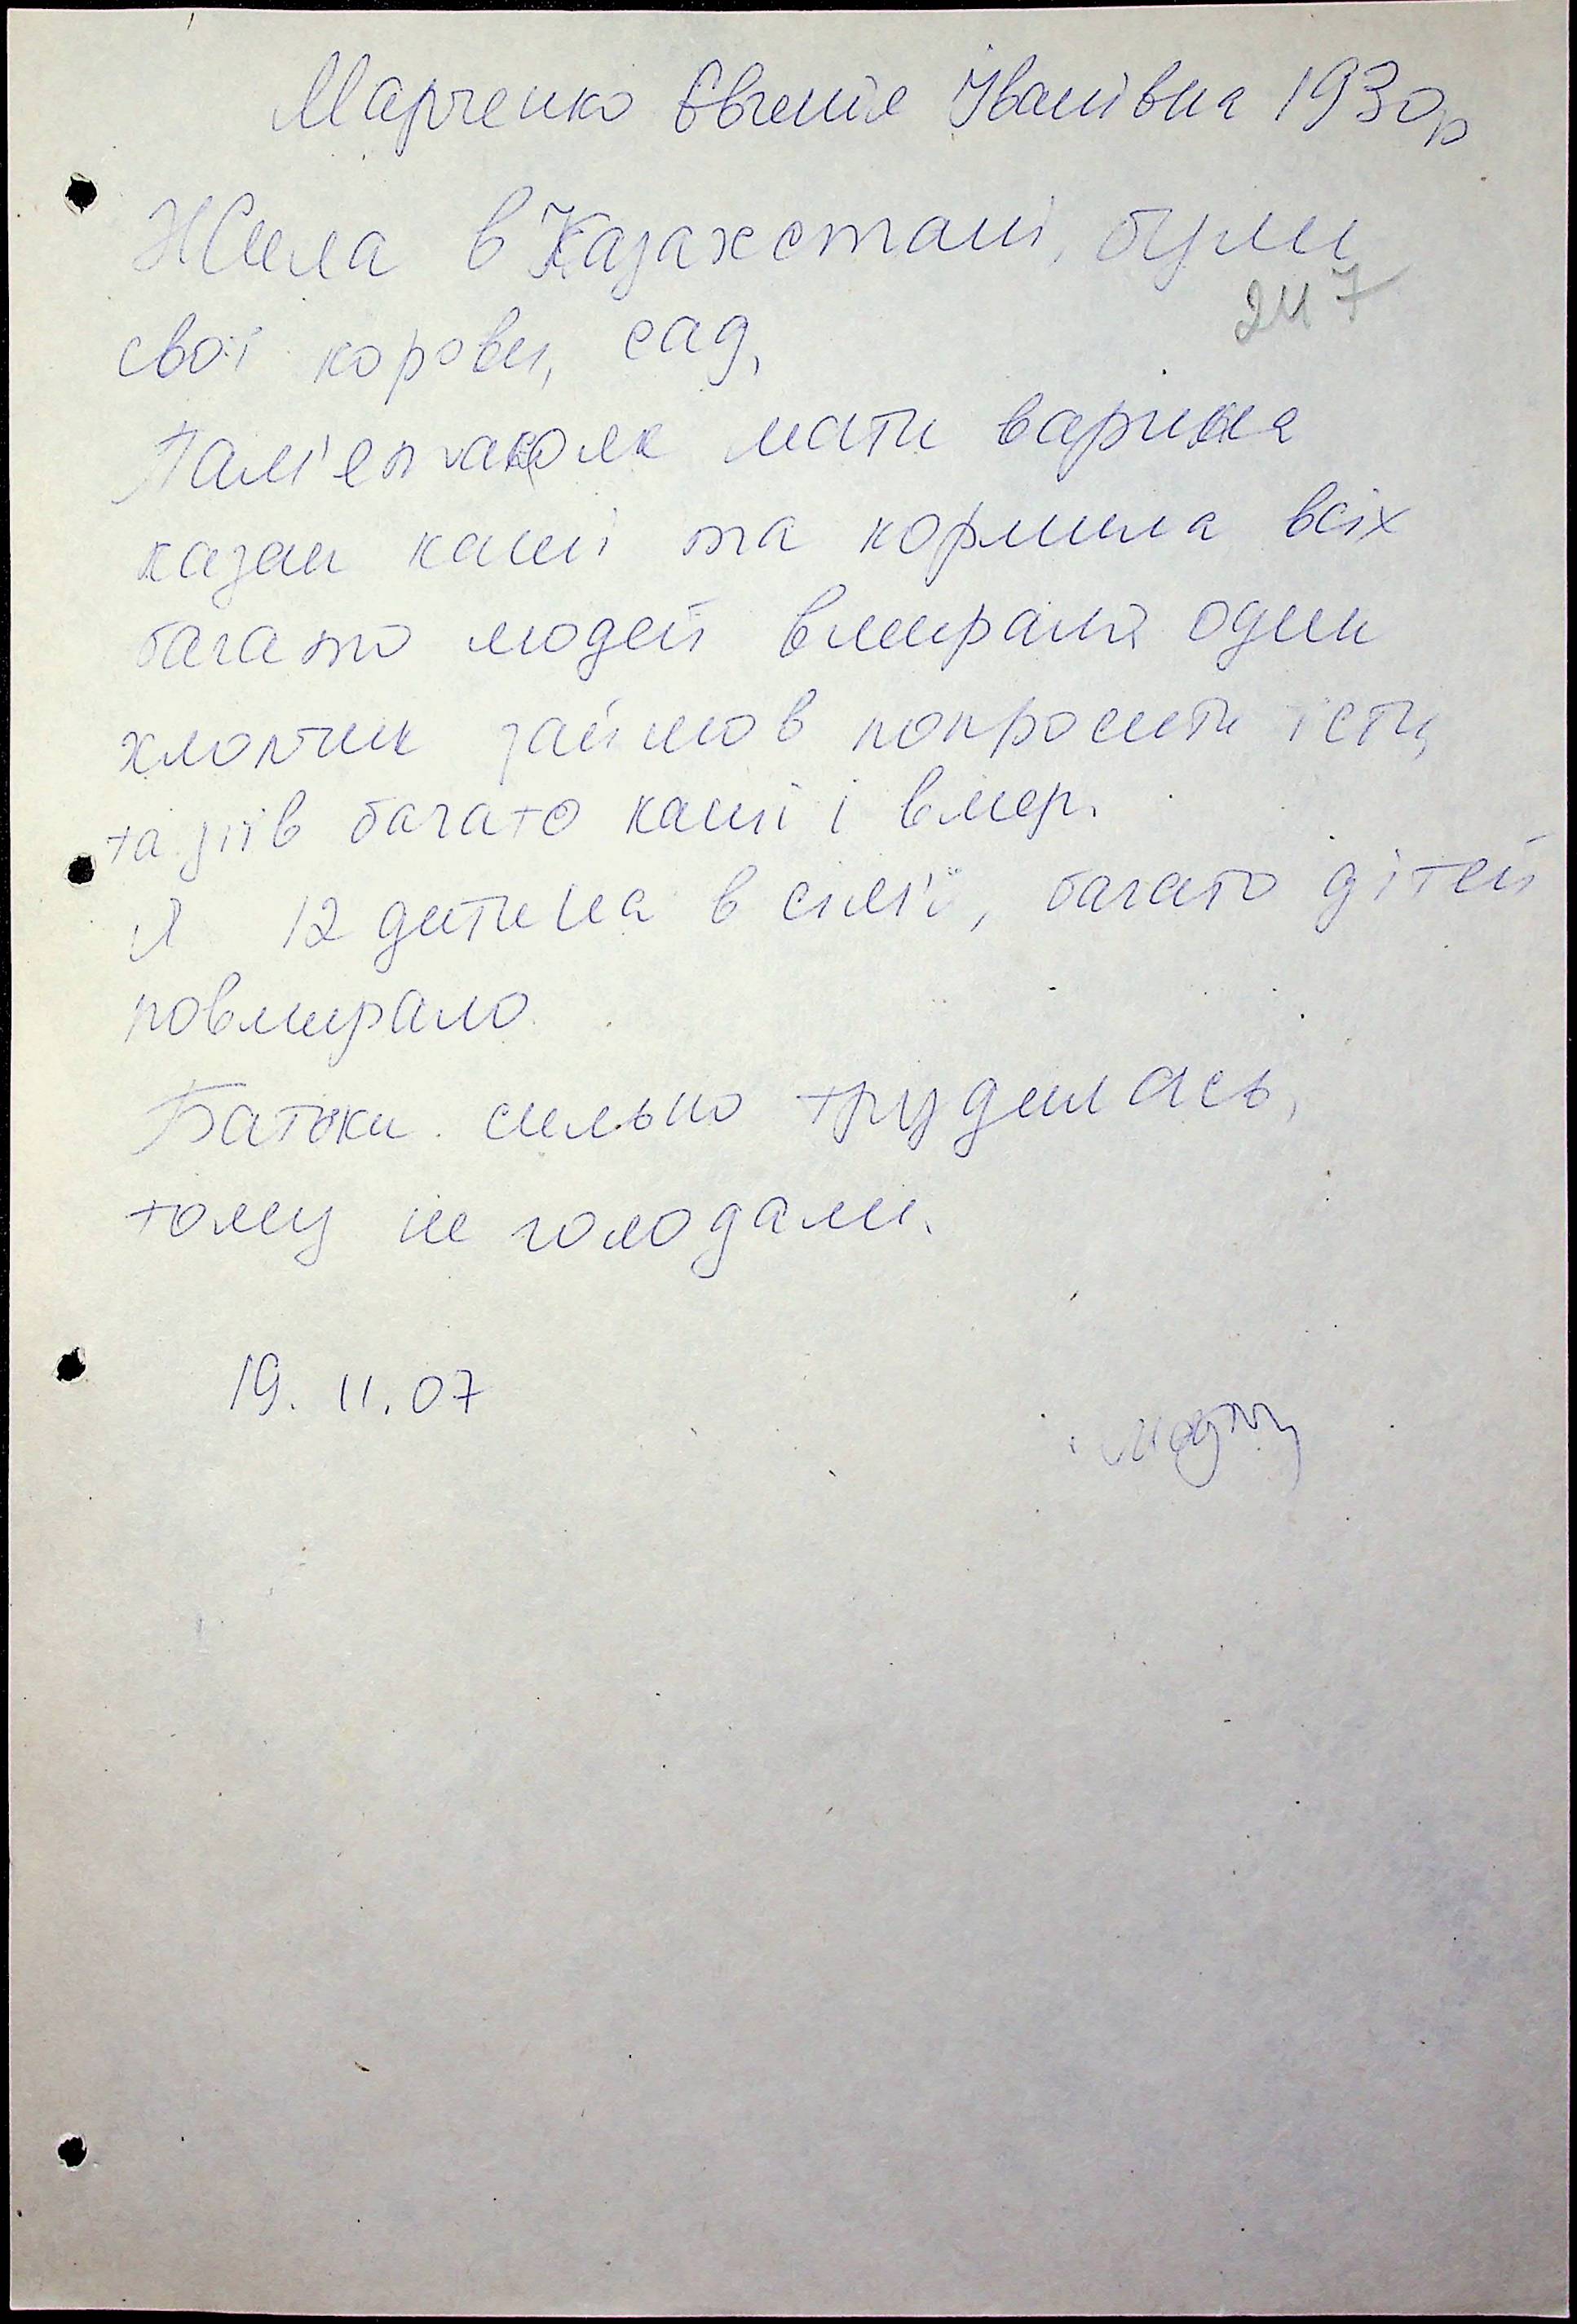 Марченко Євгенія Іванівна 1930р
Жила в Казахстані, були
247
свої корови, сад,
Пам'ятаю як мати варила
казан каші та кормила всіх
багато людей вмирало один
хлопчик зайшов попросити їсти,
та з'їв багато каші і вмер.
Я 12 дитина в сім'ї, багато дітей
повмирало.
Батьки сильно трудились,
тому не голодали.
19.11.07